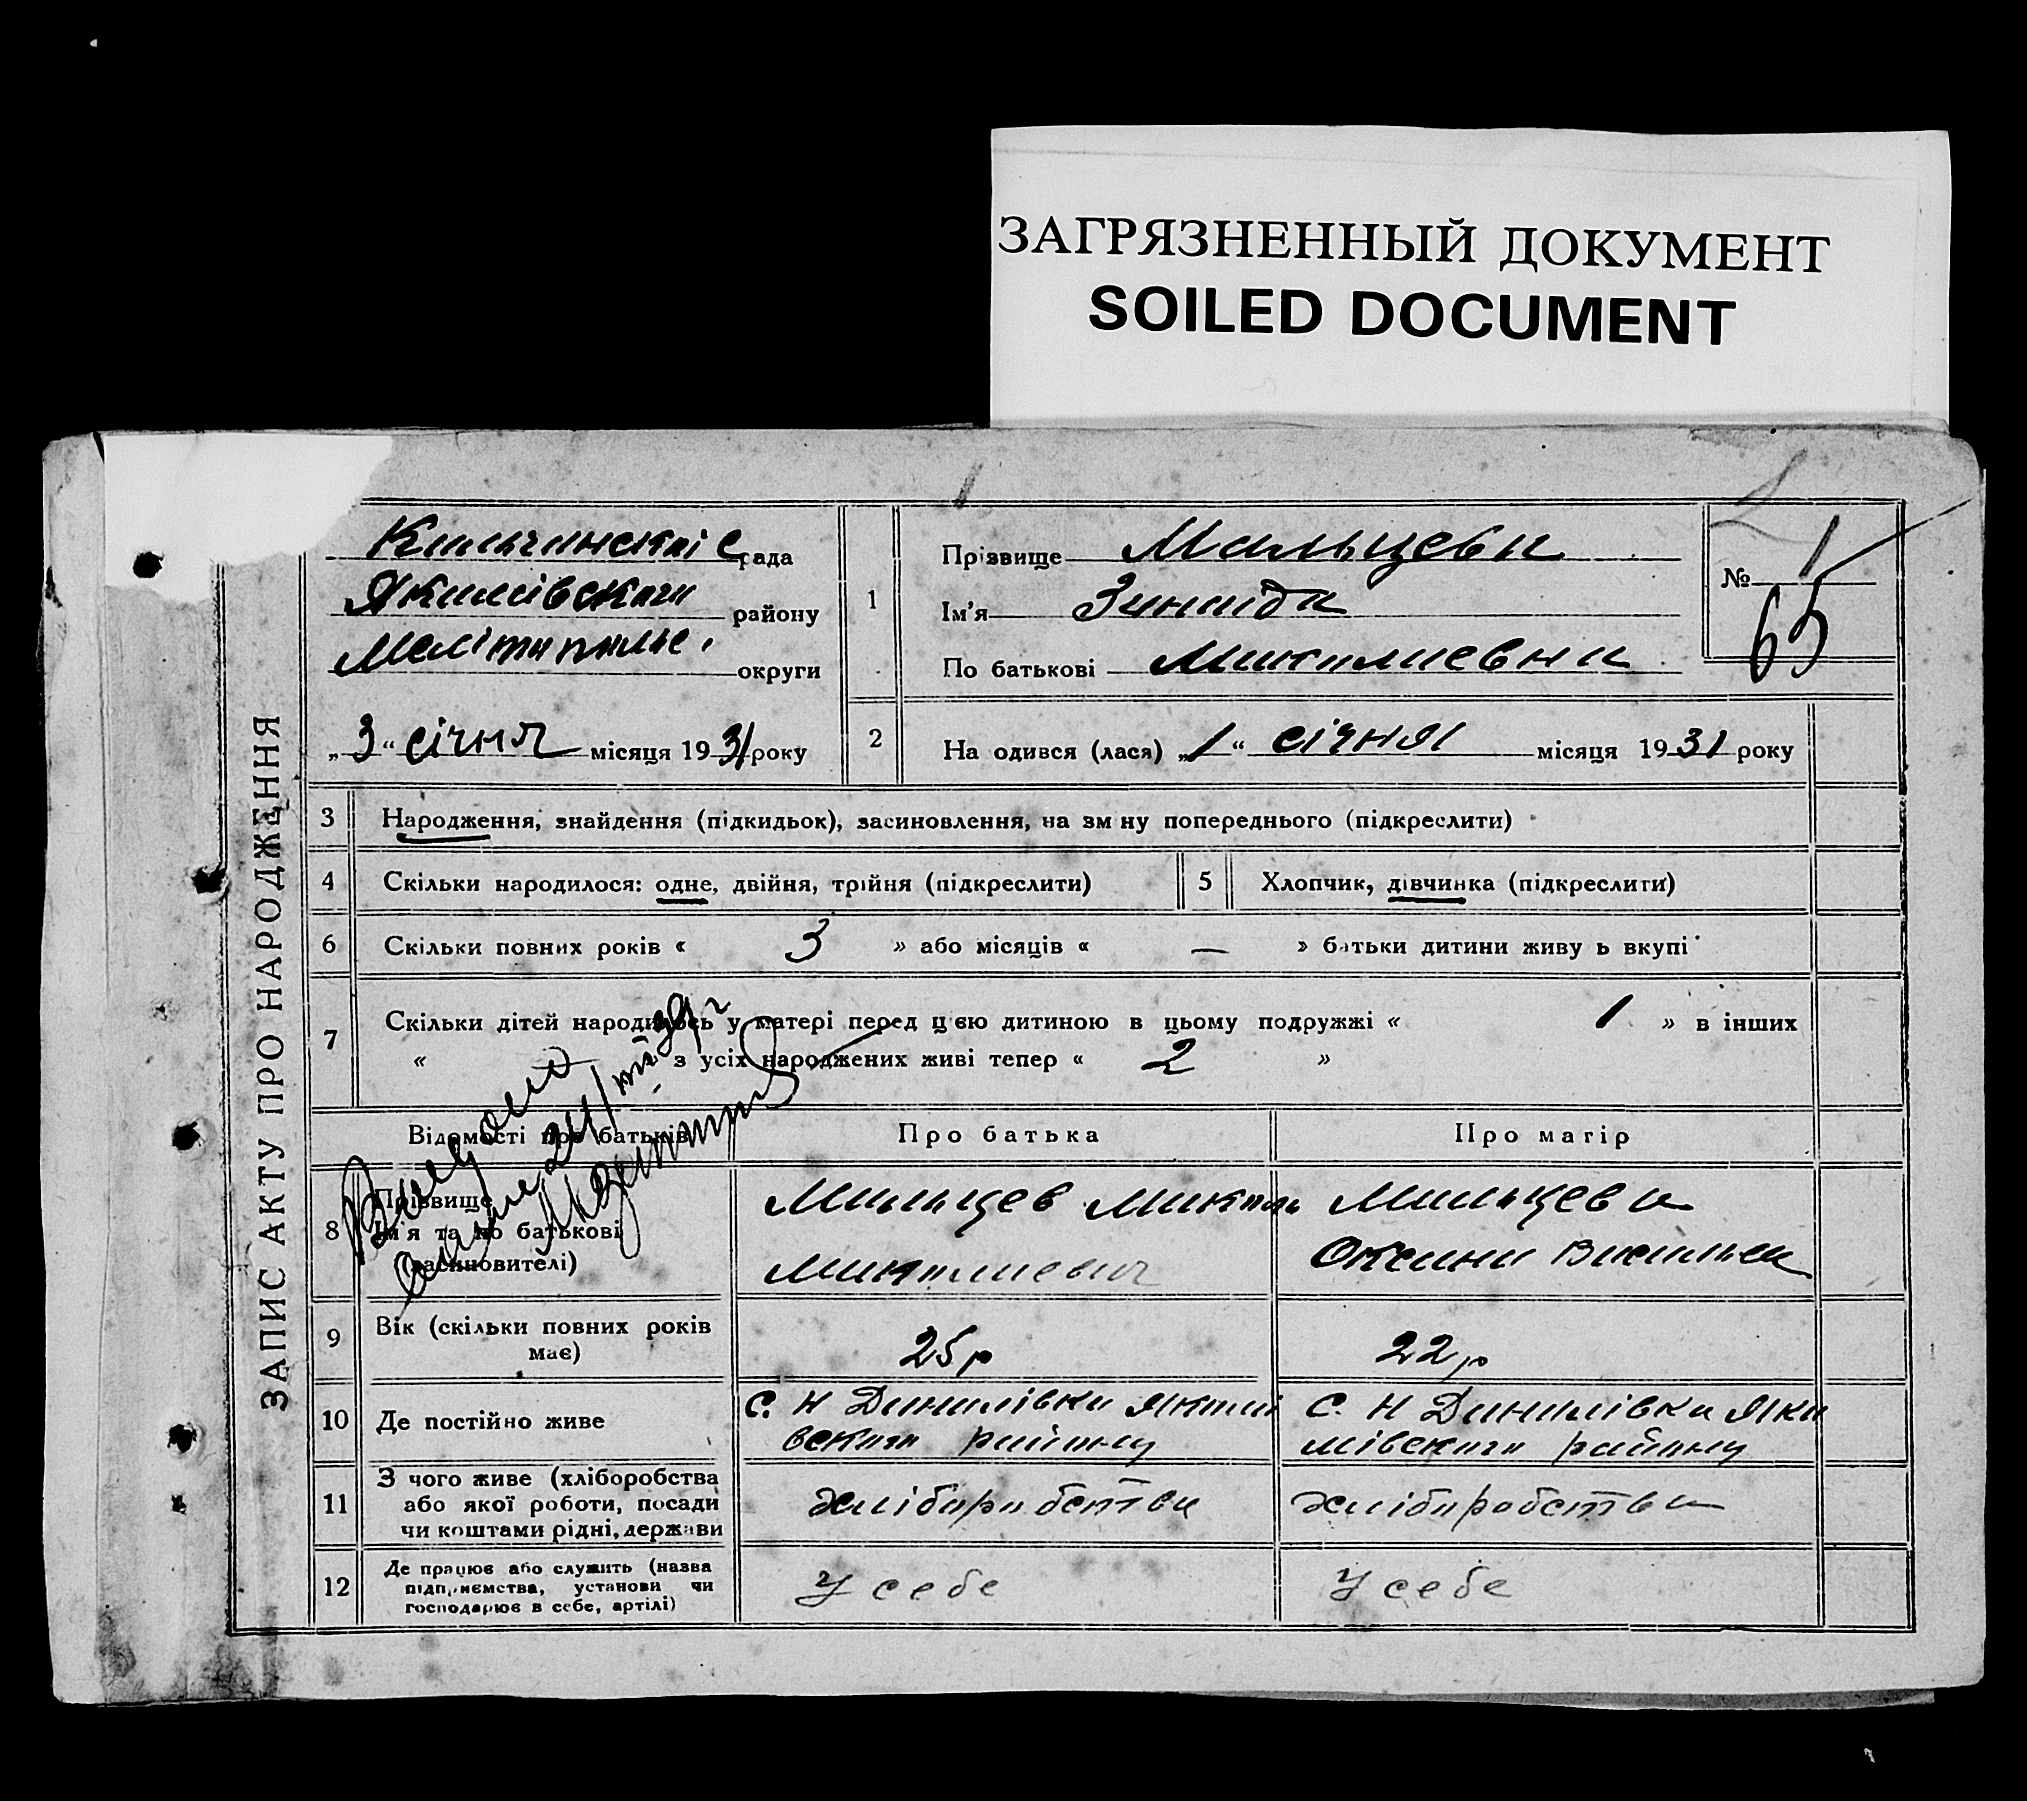 ЗАГРЯЗНЕННЫЙ ДОКУМЕНТ
SOILED DOCUMENT
ЗАПИС АКТУ ПРО НАРОДЖЕННЯ
с рада
Якимівского району
Мелітопольс. округи
„3“ січня місяця 1931 року
1
Прізвище Мальцева
Ім'я Зинаіда
По батькові Миколаевна
№ 1
65
2 На одився (лася) „1“ січня місяця 1931 року
3 Народження, знайдення (підкидьок), засиновлення, на зм ну попереднього (підкреслити)
4 Скільки народилося: одне, двійня, трійня (підкреслити)
5 Хлопчик, дівчинка (підкреслити)
6 Скільки повних років « 3 » або місяців « — » батьки дитини живу ь вкупі
7 Скільки дітей народилось у матері перед цією дитиною в цьому подружжі « 1 » в інших
« » з усіх народжених живі тепер « 2 »
Відомості про батьків Про батька Про матір
8 Прізвище
Ім'я та по батькові
(засиновителі)
Мальцев Микола
Миколаевич
Мальцева
Оксана Васильев
9 Вік (скільки повних років
має)
25р
22р
10 Де постійно живе
с. Н Данилівка Якимі
вского району
с. Н Данилівка Яки
мівского району
11 З чого живе (хліборобства
або якої роботи, посади
чи коштами рідні, держави
хліборобства
хліборобства
12 Де працює або служить (назва
підприємства, установи чи
господарює в себе, артілі)
У себе
У себе